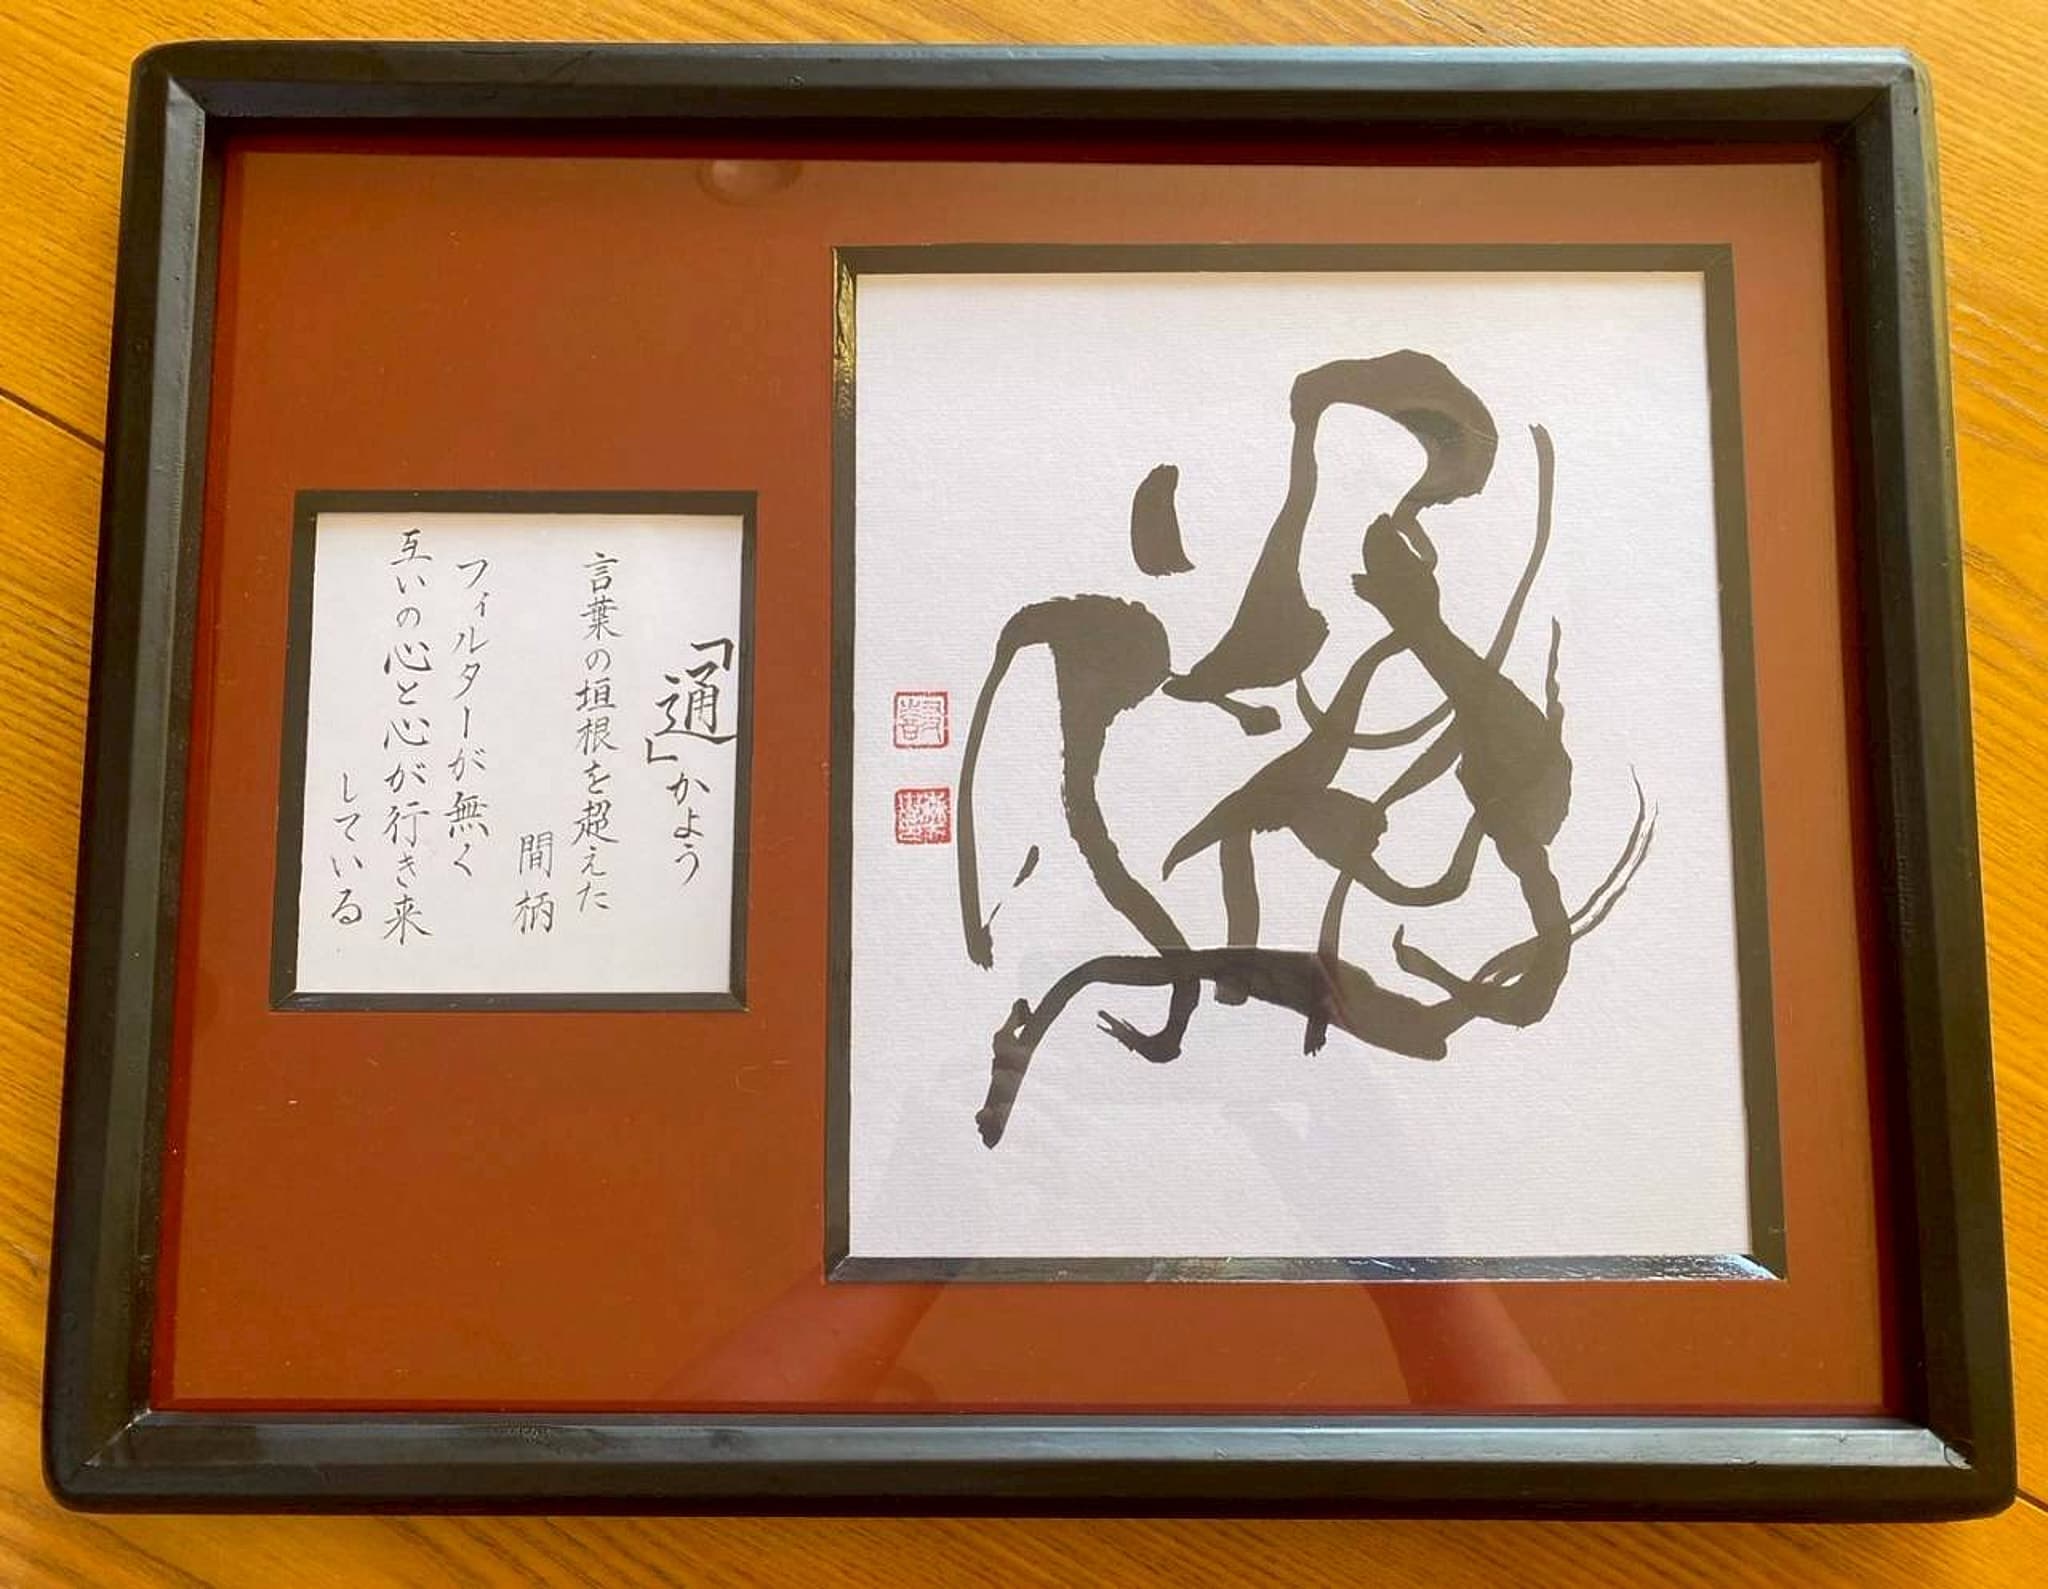 通
「通」かよう
言葉の垣根を超えた
間柄
フィルターが無く
互いの心と心が行き来
している